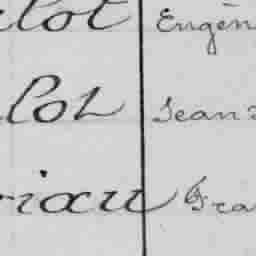 elot Eugèn
lot Jean
riau Fra